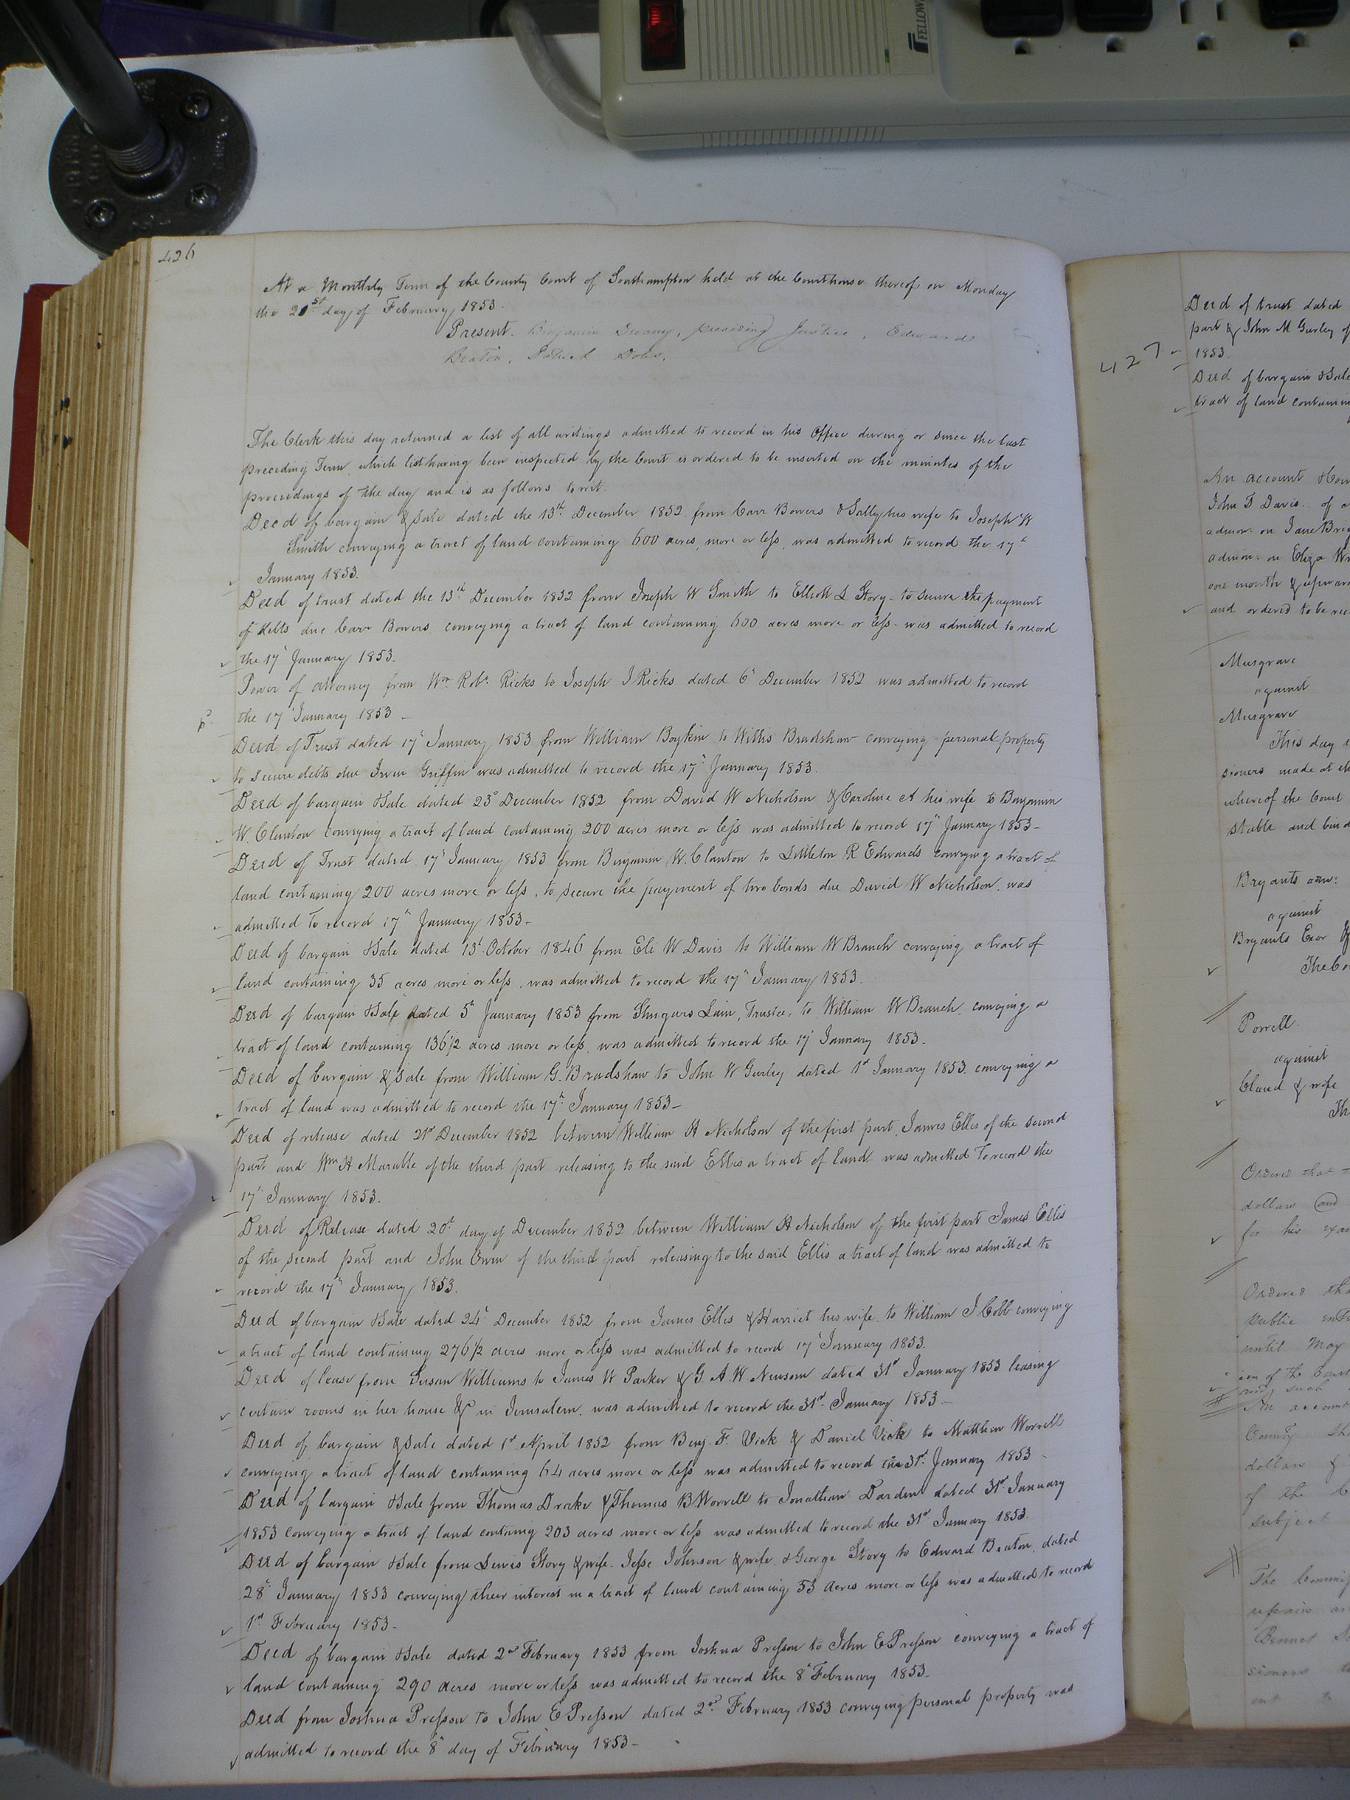 FELLOW
426
At a Monthly Term of the County Court of Southampton held at the Courthouse thereof on Monday
the 21st day of February 1853.
Present. Benjamin presiding Justice, Edward
Beaton,
The Clerk this day returned a list of all writings admitted to record in his Office during or since the last
preceding Term which list having been inspected by the Court is ordered to be inserted on the minutes of the
proceedings of the day and is as follows to wit.
Deed of bargain & Sale dated the 13th December 1852 from Carr Bowers & Sally his wife to Joseph W
Smith conveying a tract of land containing 600 acres, more or less, was admitted to record the 17th
January 1853.
Deed of trust dated the 13th December 1852 from Joseph W Smith to Elliott L Story - to secure the payment
of debts due Carr Bowers conveying a tract of land containing 600 acres more or less - was admitted to record
the 17th January 1853.
Power of attorney from Wm Robt Ricks to Joseph J Ricks dated 6th December 1852 was admitted to record
the 17th January 1853 -
Deed of Trust dated 17th January 1853 from William Boykin to Willis Bradshaw conveying personal property
to secure debts due Irvin Griffin was admitted to record the 17th January 1853.
Deed of bargain & Sale dated 23d December 1852 from David W Nicholson & Caroline A his wife to Benjamin
W. Clanton conveying a tract of land containing 200 acres more or less was admitted to record 17th January 1853-
Deed of Trust dated 17th January 1853 from Benjamin W. Clanton to Littleton R Edwards conveying a tract of
land containing 200 acres more or less, to secure the payment of two bonds due David W Nicholson, was
admitted to record 17th January 1853-
Deed of bargain & Sale dated 13th October 1846 from Eli W Davis to William W Branch conveying a tract of
land containing 35 acres more or less, was admitted to record the 17th January 1853.
Deed of bargain & Sale dated 5th January 1853 from Lain, Trustee, to William W Branch, conveying a
tract of land containing 136 1/2 acres more or less, was admitted to record the 17th January 1853.
Deed of bargain & Sale from William G. Bradshaw to John W Gurley dated 1st January 1853 conveying a
tract of land was admitted to record the 17th January 1853-
Deed of release dated 21st December 1852 between William H Nicholson of the first part, James Ellis of the second
part and Wm H Marable of the third part releasing to the said Ellis a tract of land was admitted to record the
17th January 1853.
Deed of Release dated 20th day of December 1852 between William H Nicholson of the first part James Ellis
of the second part and John Owen of the third part releasing to the said Ellis a tract of land was admitted to
record the 17th January 1853.
Deed of bargain & Sale dated 24th December 1852 from James Ellis & Harriet his wife to William J Cobb conveying
a tract of land containing 276 1/2 acres more or less was admitted to record 17th January 1853.
Deed of lease from Susan Williams to James W Parker & G. A. W Newsom dated 31st January 1853 leasing
certain rooms in her house &c in Jerusalem, was admitted to record the 31st January 1853 -
Deed of bargain & Sale dated 1st April 1852 from Benj. F. Vick & Daniel Vick to Matthew Worrell
conveying a tract of land containing 64 acres more or less was admitted to record 31st January 1853 -
Deed of bargain & Sale from Thomas Drake & Thomas B Worrell to Jonathan Darden dated 31st January
1853 conveying a tract of land containg 203 acres more or less was admitted to record the 31st January 1853.
Deed of bargain & Sale from Lewis Story & wife, Jesse Johnson & wife, & George Story to Edward Beaton, dated
28th January 1853 conveying their interest in a tract of land containing 53 acres more or less was admitted to record
1st February 1853-
Deed of bargain & Sale dated 2nd February 1853 from Joshua Presson to John E Presson conveying a tract of
land containing 290 acres more or less was admitted to record the 8th February 1853.
Deed from Joshua Presson to John E Presson dated 2nd February 1853 conveying personal property was
admitted to record the 8th day of February 1853-
427
Deed of trust dated
part & John M Gurley of
1853.
Deed of bargain & Sale
tract of land
An account
John T Davis. of
admr. on Jane
admr. on Eliza
one month & upwards
and ordered to be
Musgrave
against
Musgrave
This day
sioners made at
whereof the Court
stable and
Bryants adm:
against
Bryants Exor
The Co
Porrell
against
Claud & wife
Th
Ordered that
dollars and
for his
Ordered tha
public
until May
An account
County
dollars &
of the C
subject
The Commis
repairs an
sioners